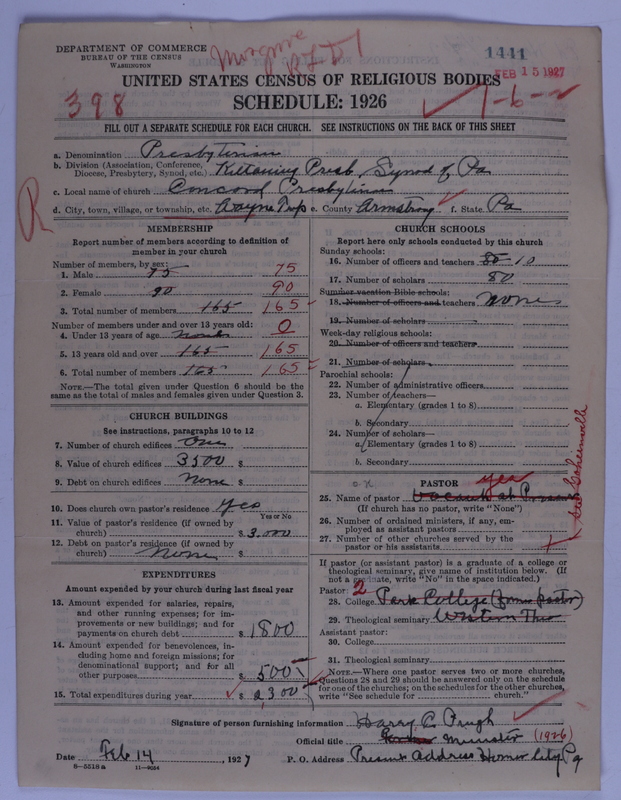 DEPARTMENT OF COMMERCE
BUREAU OF THE CENSUS
WASHINGTON
1441
FEB 15 1927
UNITED STATES CENSUS OF RELIGIOUS BODIES
SCHEDULE: 1926
398
1-6-
FILL OUT A SEPARATE SCHEDULE FOR EACH CHURCH. SEE INSTRUCTIONS ON THE BACK OF THIS SHEET
a. Denomination Presbyterian
b. Division (Association, Conference, Diocese, Presbytery, Synod, etc.) Kittanning Presb, Synod of Pa
c. Local name of church Concord Presbyterian
d. City, town, village, or township, etc. Wayne Twp e. County Armstrong f. State Pa
R
MEMBERSHIP
Report number of members according to definition of member in your church
Number of members, by sex:
1. Male 75 75
2. Female 90 90
3. Total number of members 165 165
Number of members under and over 13 years old:
4. Under 13 years of age none 0
5. 13 years old and over 165 165
6. Total number of members 165 165
NOTE.—The total given under Question 6 should be the same as the total of males and females given under Question 3.
CHURCH BUILDINGS
See instructions, paragraphs 10 to 12
7. Number of church edifices One
8. Value of church edifices 3500 $
9. Debt on church edifices None $
10. Does church own pastor's residence? Yes
Yes or No
11. Value of pastor's residence (if owned by church) $ 3,000
12. Debt on pastor's residence (if owned by church) None $
EXPENDITURES
Amount expended by your church during last fiscal year
13. Amount expended for salaries, repairs, and other running expenses; for improvements or new buildings; and for payments on church debt $ 1800
14. Amount expended for benevolences, including home and foreign missions; for denominational support; and for all other purposes $ 500
15. Total expenditures during year $ 2,300
CHURCH SCHOOLS
Report here only schools conducted by this church
Sunday schools:
16. Number of officers and teachers 80 10
17. Number of scholars 80
Summer vacation Bible schools:
18. Number of officers and teachers none
19. Number of scholars
Week-day religious schools:
20. Number of officers and teachers
21. Number of scholars
Parochial schools:
22. Number of administrative officers
23. Number of teachers—
a. Elementary (grades 1 to 8)
b. Secondary
24. Number of scholars—
a. Elementary (grades 1 to 8)
b. Secondary
PASTOR yes
25. Name of pastor Vacant at Present
(If church has no pastor, write "None")
26. Number of ordained ministers, if any, employed as assistant pastors
27. Number of other churches served by the pastor or his assistants
If pastor (or assistant pastor) is a graduate of a college or theological seminary, give name of institution below. (If not a graduate, write "No" in the space indicated.)
Pastor: 2
28. College Park College (former pastor)
29. Theological seminary Western Theo
Assistant pastor:
30. College
31. Theological seminary
NOTE.—Where one pastor serves two or more churches, Questions 28 and 29 should be answered only on the schedule for one of the churches; on the schedules for the other churches, write "See schedule for church."
Signature of person furnishing information Harry C. Prugh
Official title minister (1926)
Date Feb 14, 1927 P. O. Address Present address Homer City Pa
8-5518a 11-9064